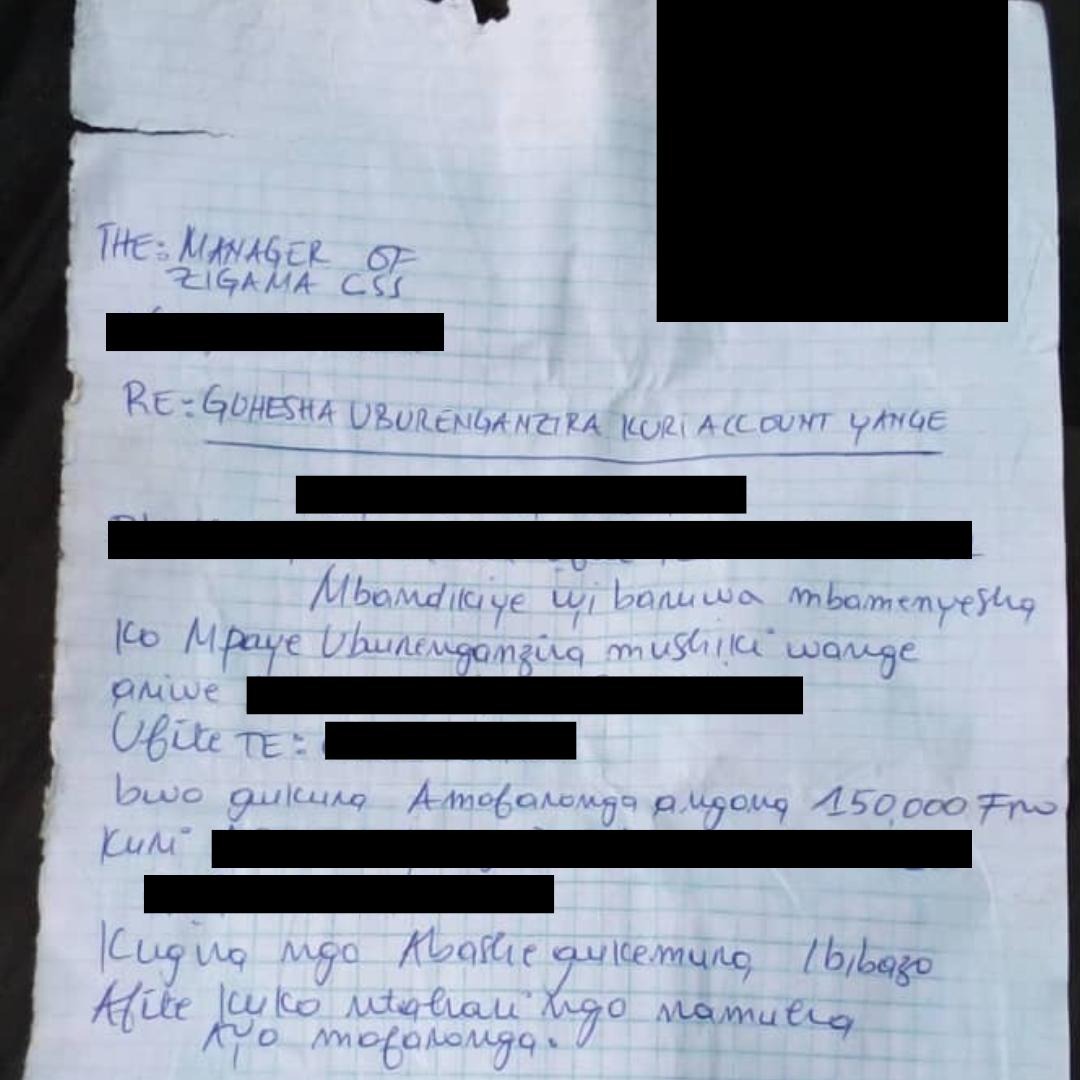 THE: MANAGER OF
ZIGAMA CSS
RE: GUHESHA UBURENGANZIRA KURI ACCOUNT YANGE
Mbandikiye iyi baruwa mbamenyesha
ko Mpaye Uburenganzira mushiki wange
ariwe
Ufite TE:
bwo gukura Amafaranga angana 150,000 Frw
kuri
Kugira ngo Abashe gukemura Ibibazo
Afite kuko ntahari ngo namuha
Ayo mafaranga.